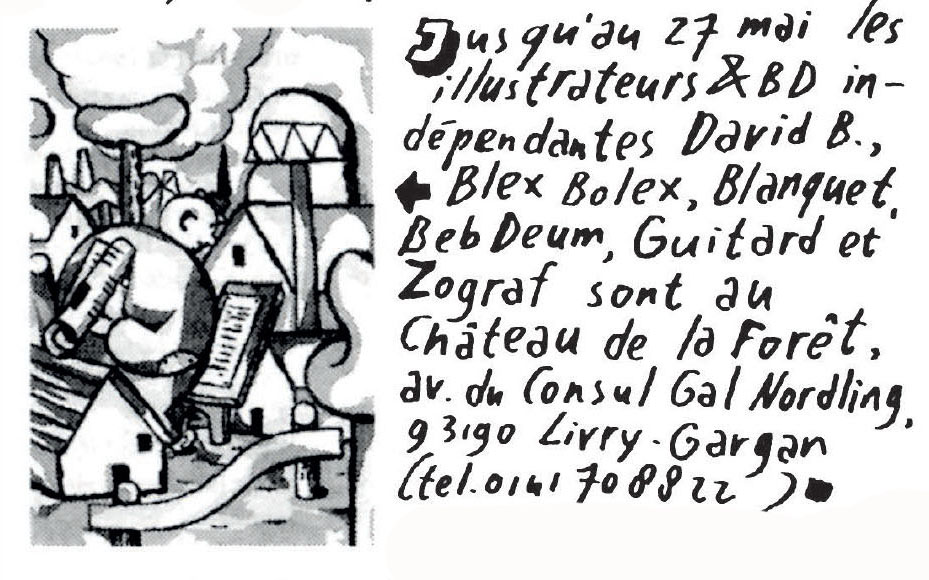 Jusqu'au 27 mai les
illustrateurs & BD in-
dépendantes David B.,
Blex Bolex, Blanquet,
Beb Deum, Guitard et
Zograf sont au
Château de la Forêt,
av. du Consul Gal Nordling,
93190 Livry-Gargan
(tel. 0141708822)